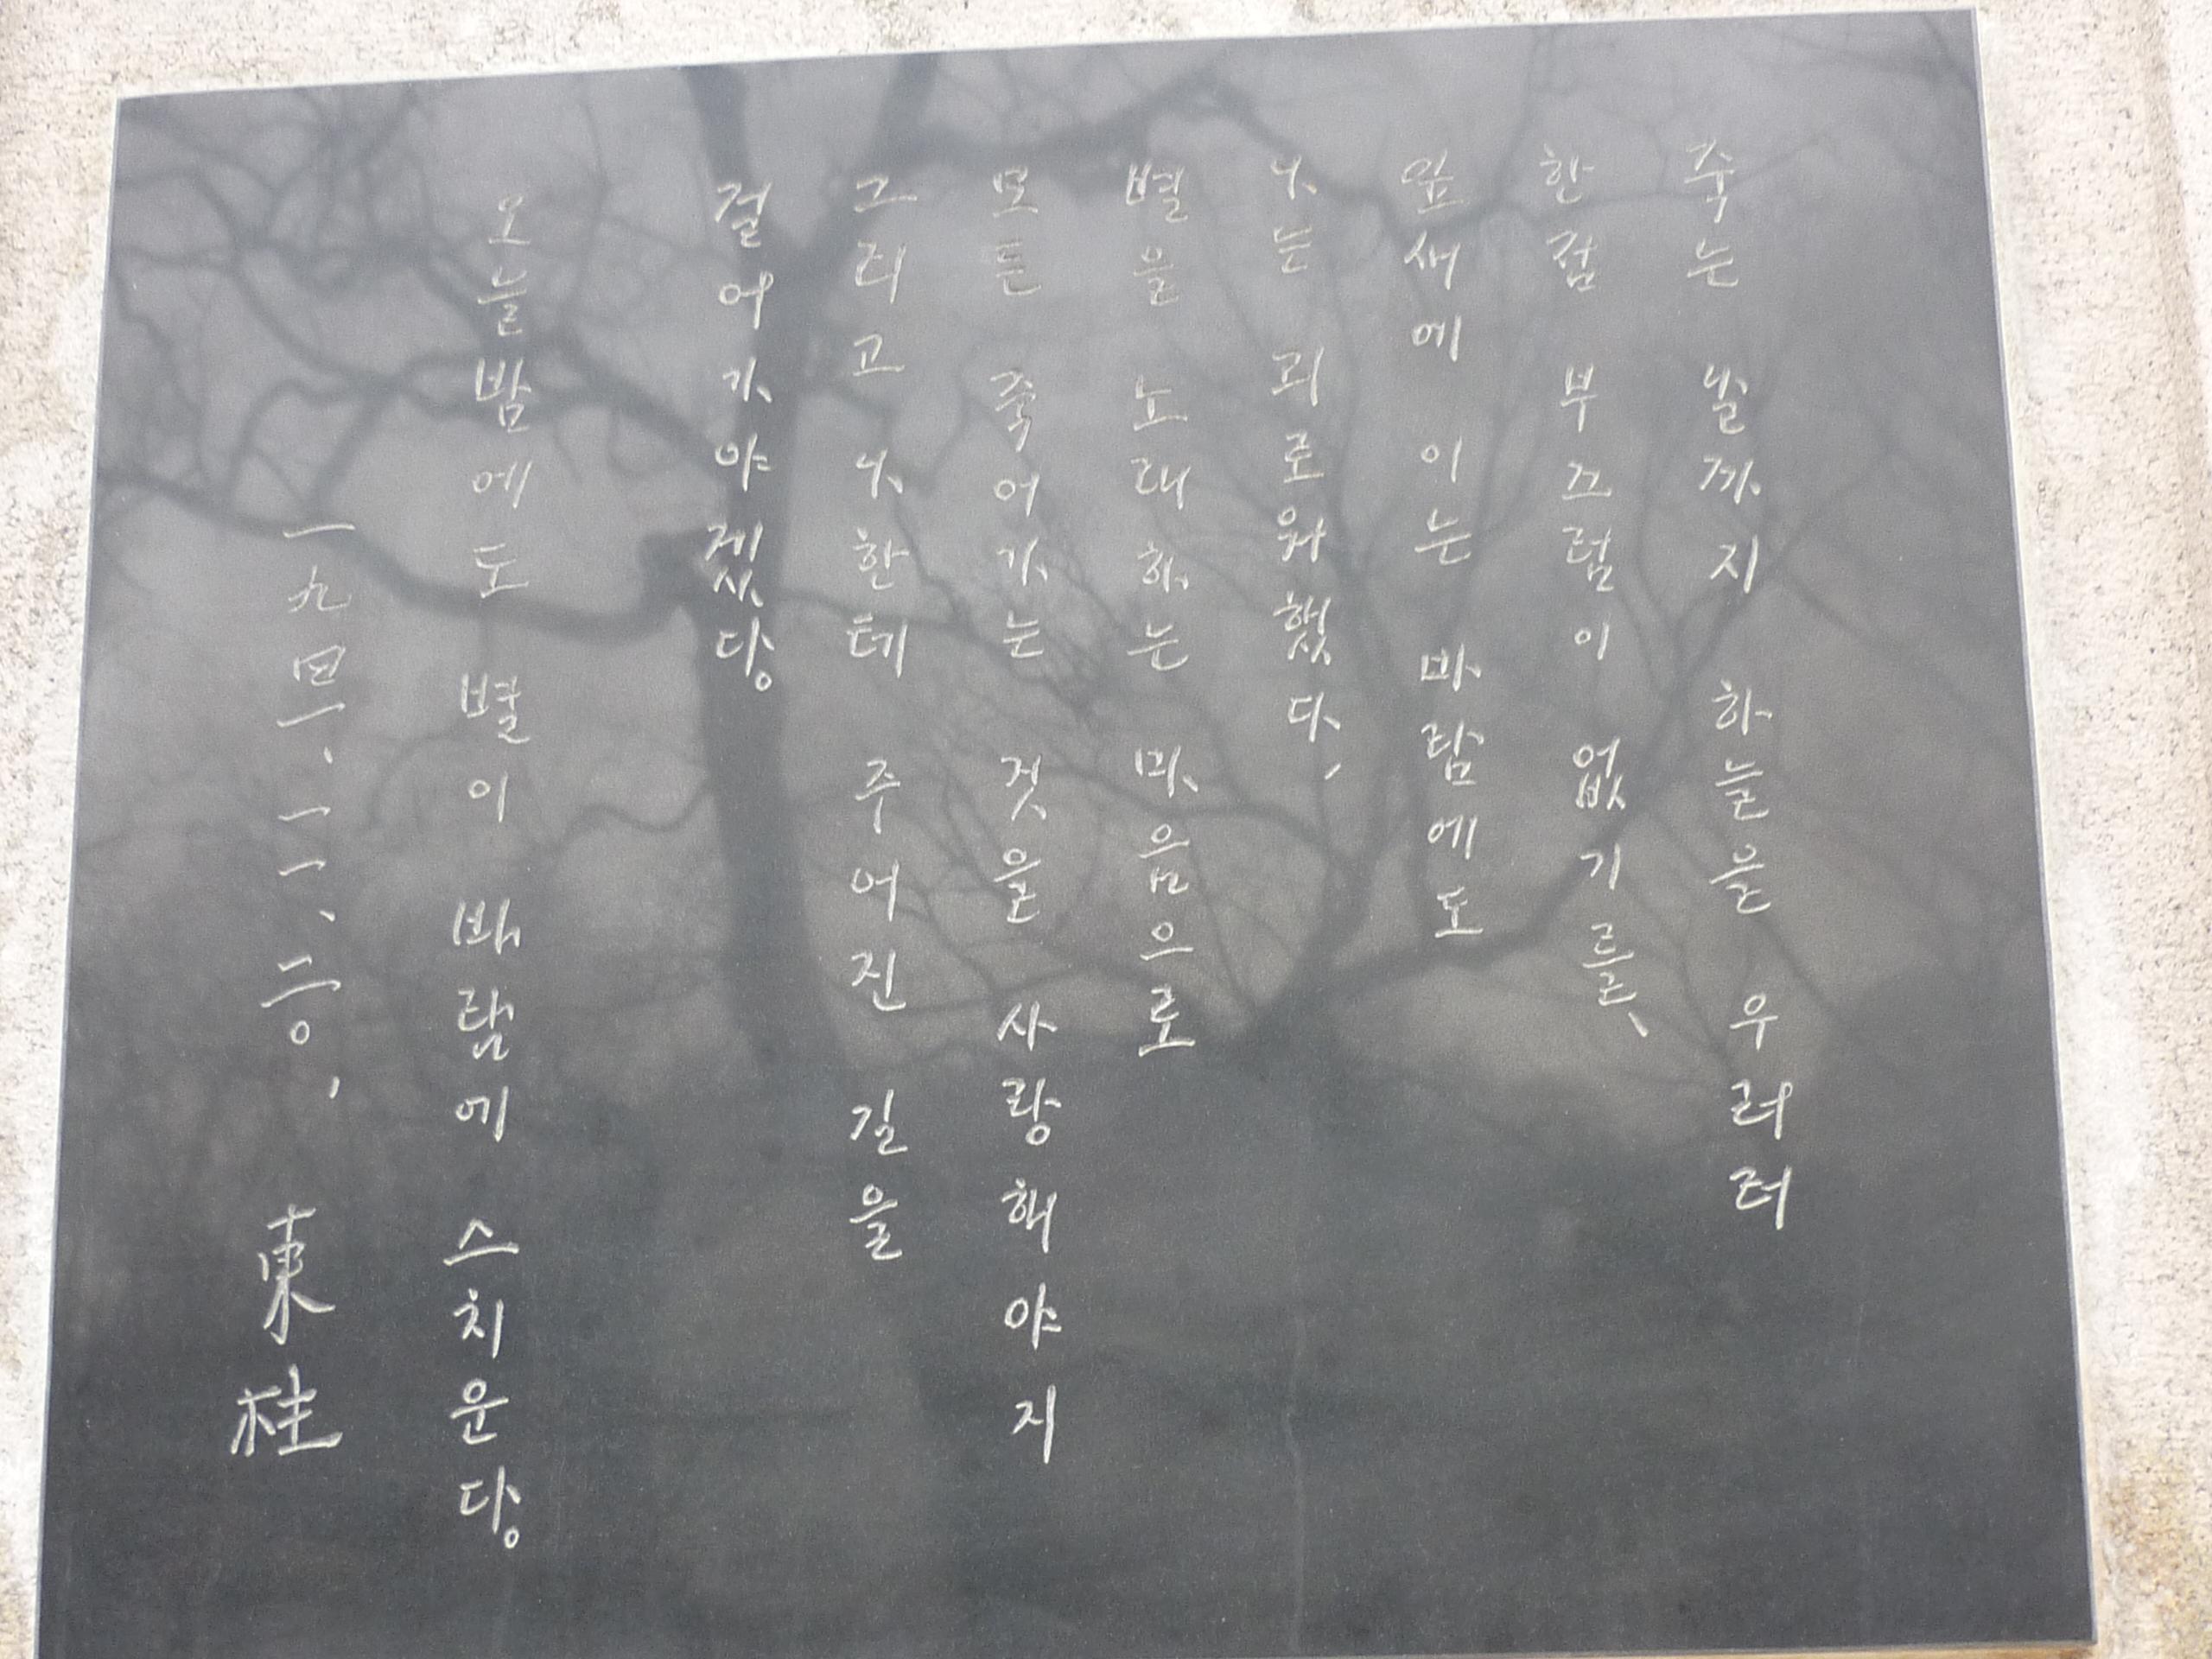 죽는 날까지 하늘을 우러러
한점 부끄럼이 없기를、
잎새에 이는 바람에도
나는 괴로워했다,
별을 노래하는 마음으로
모든 죽어가는 것을 사랑해야지
그리고 나한테 주어진 길을
걸어가야겠다。
오늘밤에도 별이 바람에 스치운다。
一九四一、一一、二〇,
東柱